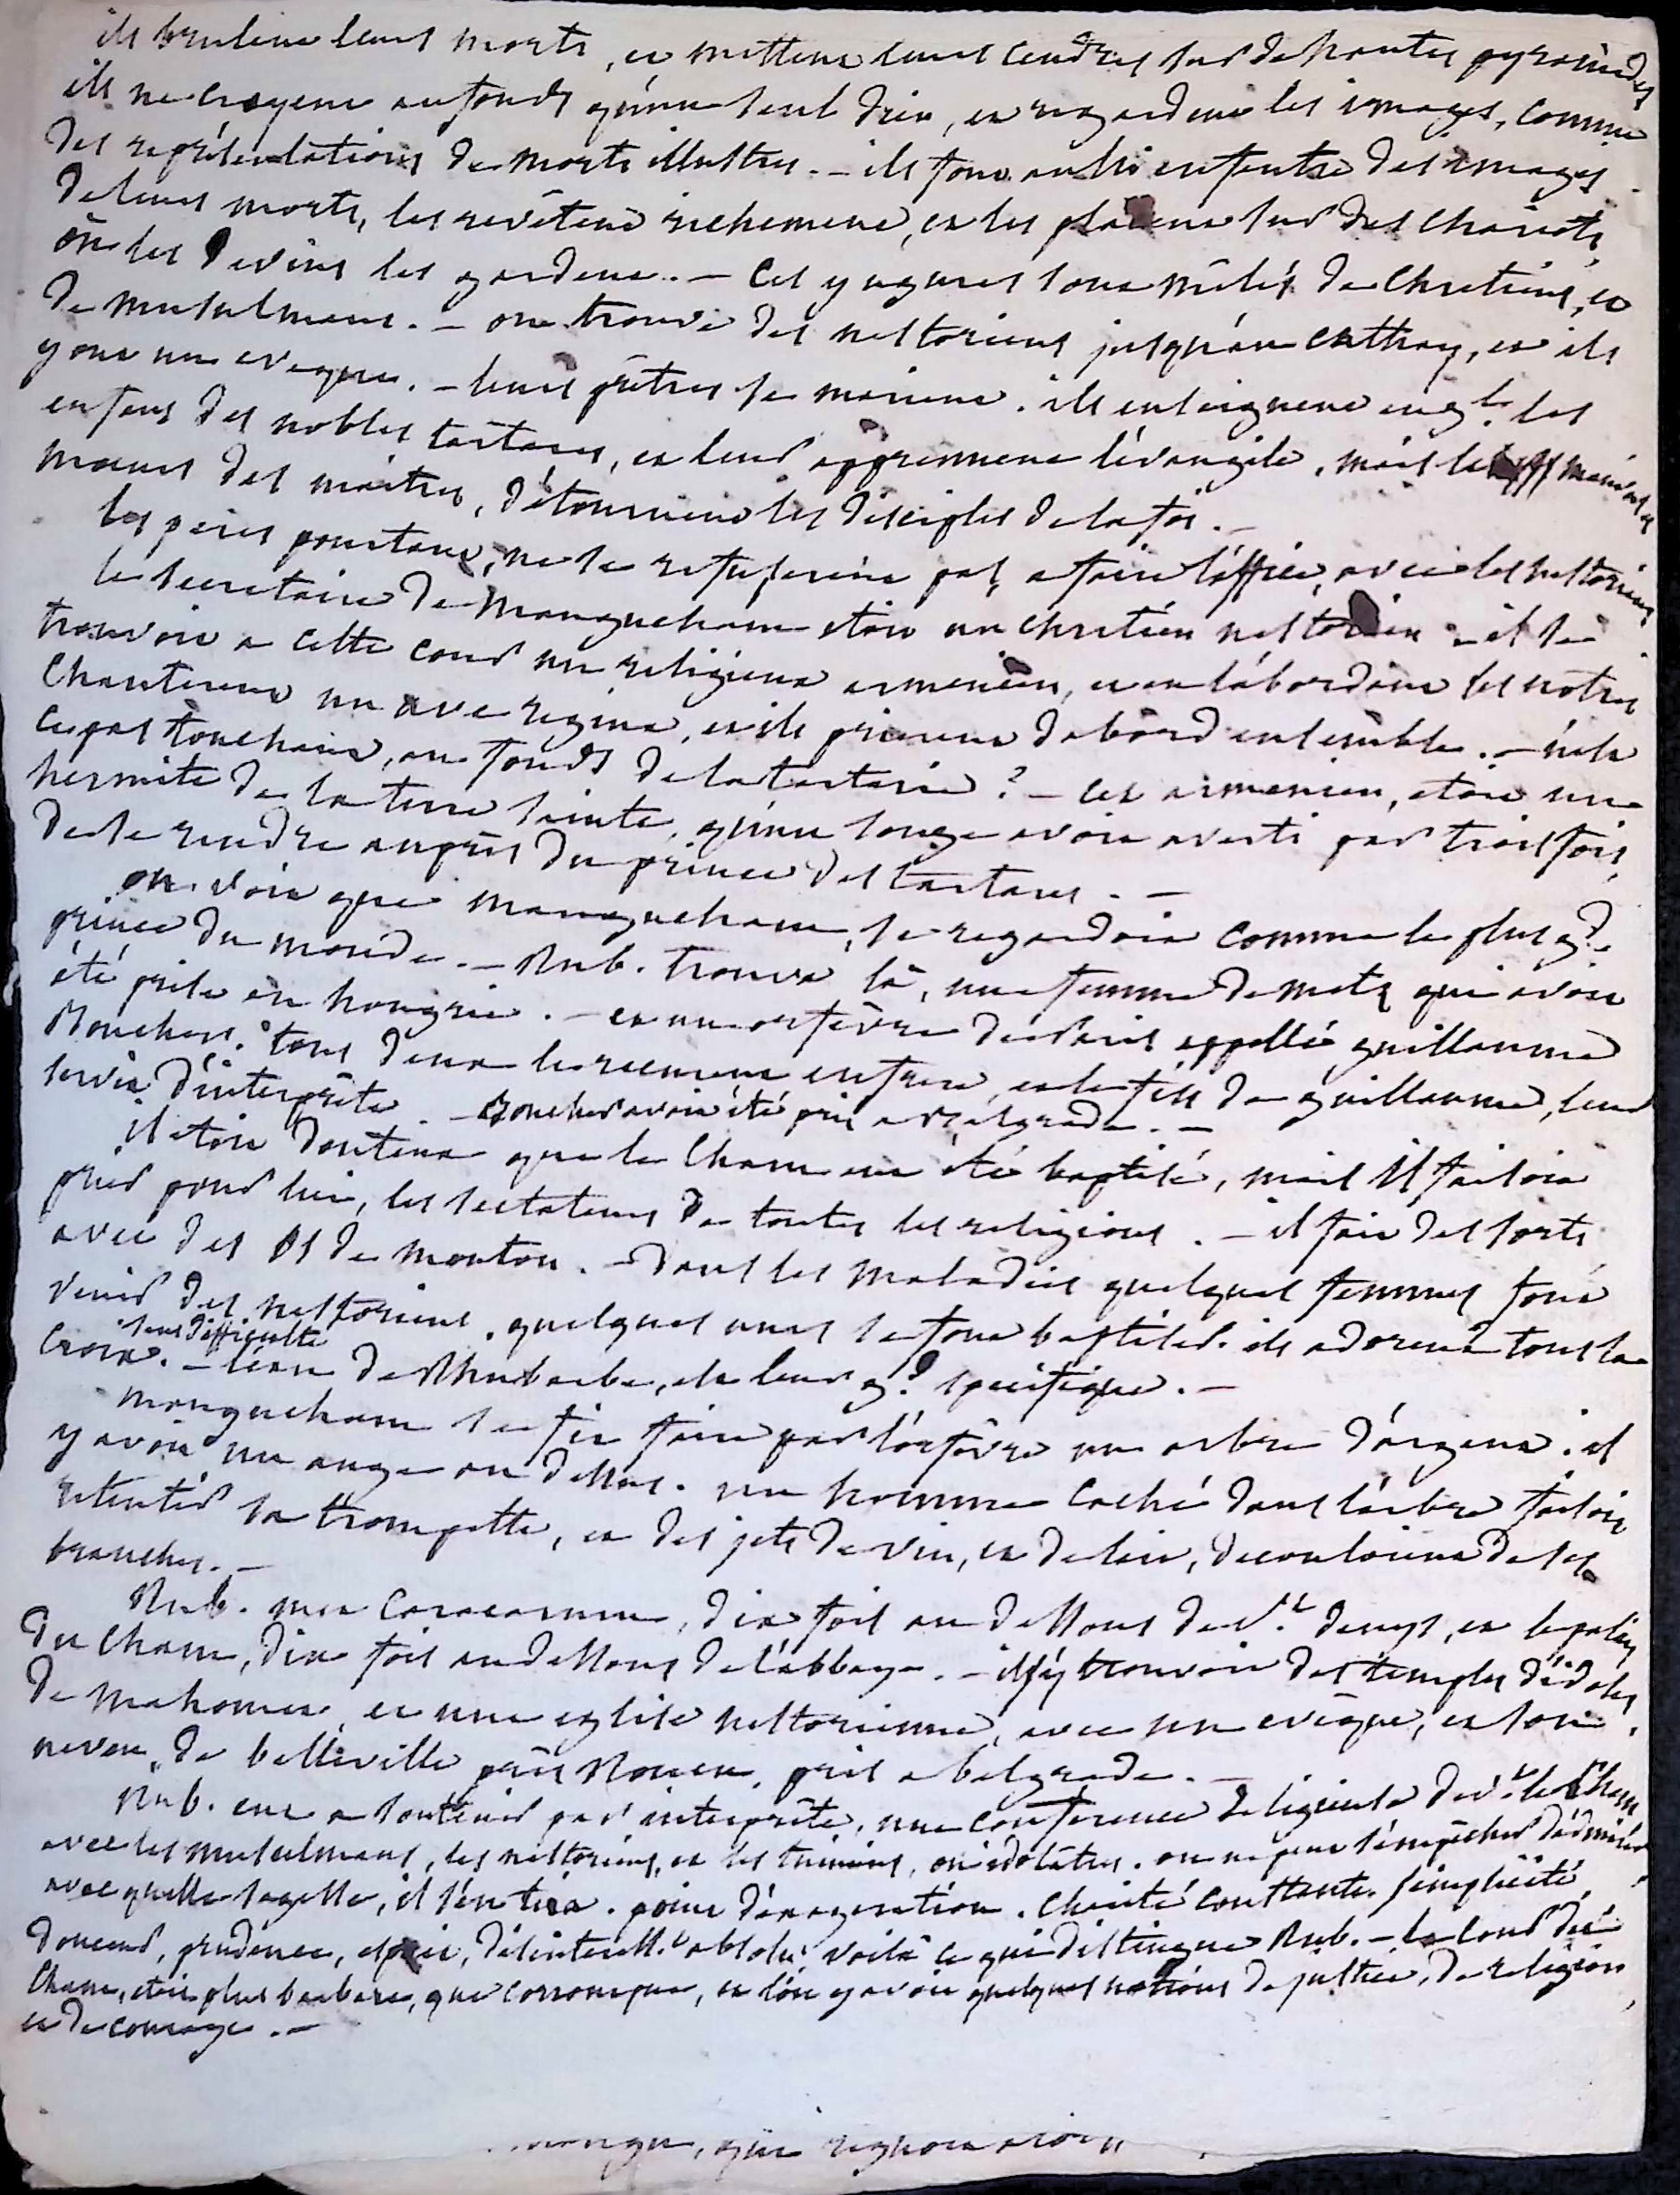 ils brulent leurs morts, et mettent leurs cendres sur de hautes pyramides
ils ne croyent au fonds qu'un seul dieu, et regardent les images, comme
des représentations de morts illustres. - ils font aussi en feutre des images
de leurs morts, les revêtent richement, et les placent sur des chariots,
où les devins les gardent. - Ces yugures sont mêlés de chretiens, et
de musulmans. - on trouve des nestoriens jusqu'au cathay, et ils
y ont un eveque. - leurs prêtres se marient. ils enseignent en gl. les
enfans des nobles tartares, et leur apprennent l'évangile, mais les mauvaises
moeurs des maitres, détournent les disciples de la foi. -
les peres pourtant, ne se refuserent pas, a faire l'office, avec les nestoriens
le secretaire de mangucham etoit un chretien nestorien - il se
trouvoit a cette cour un religieux armenien, et en l'abordant les notres
chanterent un ave regina, et ils prierent d'abord ensemble. - n'est
ce pas touchant, au fonds de la tartarie? - cet armenien, etoit un
hermite de la terre sainte, qu'un songe avoit averti par trois fois,
de se rendre auprès du prince des tartares. -
on voit que mangucham, se regardoit comme le plus gd.
prince du monde. - Rub. trouva là, une femme de metz qui avoit
été prise en hongrie. - et un orfèvre de Paris appellé guillaume
Boucher. tous deux les reçurent en frere, et le fils de guillaume, leur
servit d'interprète. - Boucher avoit été pris a Belgrade. -
il etoit douteux que le Cham eut été baptisé, mais il faisoit
prier pour lui, les sectateurs de toutes les religions. - il fait des sorts
avec des os de mouton. - dans les maladies quelques femmes font
venir des nestoriens. quelques unes se font baptiser. ils adorent tous la
sans difficulté
croix. - l'eau de Rhubarbe, est leur gd. specifique. -
mangucham se fit faire par l'orfèvre un arbre d'argent. il
y avoit un ange au dessus. un homme caché dans l'arbre faisoit
retentir sa trompette, et des jets de vin, et de lait, decouloient de ses
branches. -
Rub. met Caracarum, dix fois au dessous de St. denys, et le palais
du Cham, dix fois au dessous de l'abbaye. - il s'y trouvoit des temples d'idoles,
de mahomet, et une eglise nestorienne, avec un evêque, et son
neveu, de belleville près Rouen, pris a belgrade. -
Rub. eut a soutenir par interprète, une conference religieuse le Cham
avec les musulmans, les nestoriens, et les tuiniens, ou idolâtres. on ne peut s'empêcher d'admirer
avec quelle sagesse, il s'en tira. point d'exageration. charité constante. simplicité,
douceur, prudence, esprit, désinteresst. absolu, voilà ce qui distingue Rub. - la cour du
Cham, etoit plus barbare, que corrompue, et l'on y avoit quelques notions de justice, de religion,
et de courage. -
mangu, qui regnoit alors